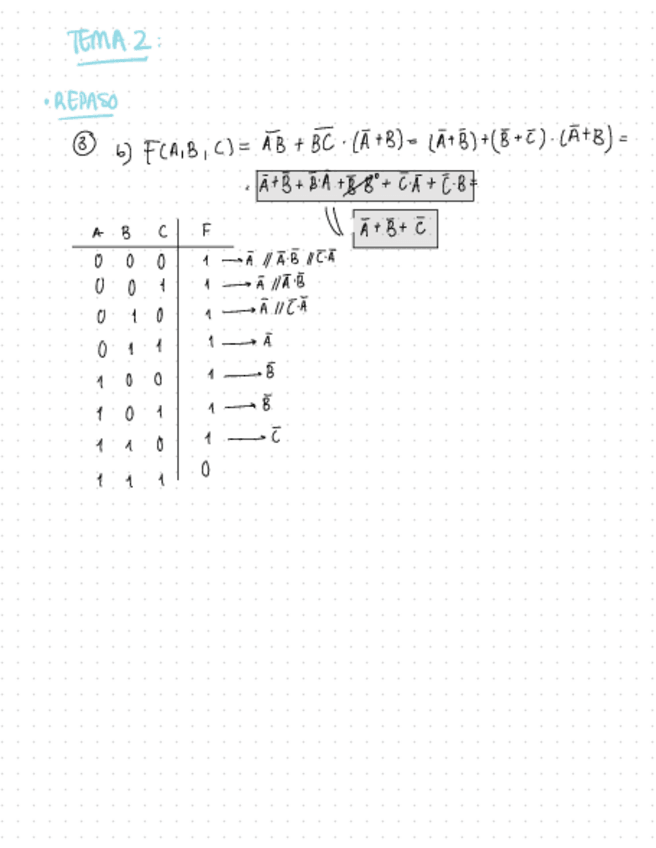 TEMA 2:
• REPASO
③ b) F(A,B,C) = A̅B̅ + B̅C̅ · (A̅+B) = (A̅+B̅)+(B̅+C̅)·(A̅+B) =
· A̅+B̅+B̅·A̅+B̅·B⁰+C̅·A̅+C̅·B=
A̅+B̅+C̅
A B C F
0 0 0 1 → A̅ // A̅·B̅ // C̅·A̅
0 0 1 1 → A̅ // A̅·B̅
0 1 0 1 → A̅ // C̅·A̅
0 1 1 1 → A̅
1 0 0 1 → B̅
1 0 1 1 → B̅
1 1 0 1 → C̅
1 1 1 0